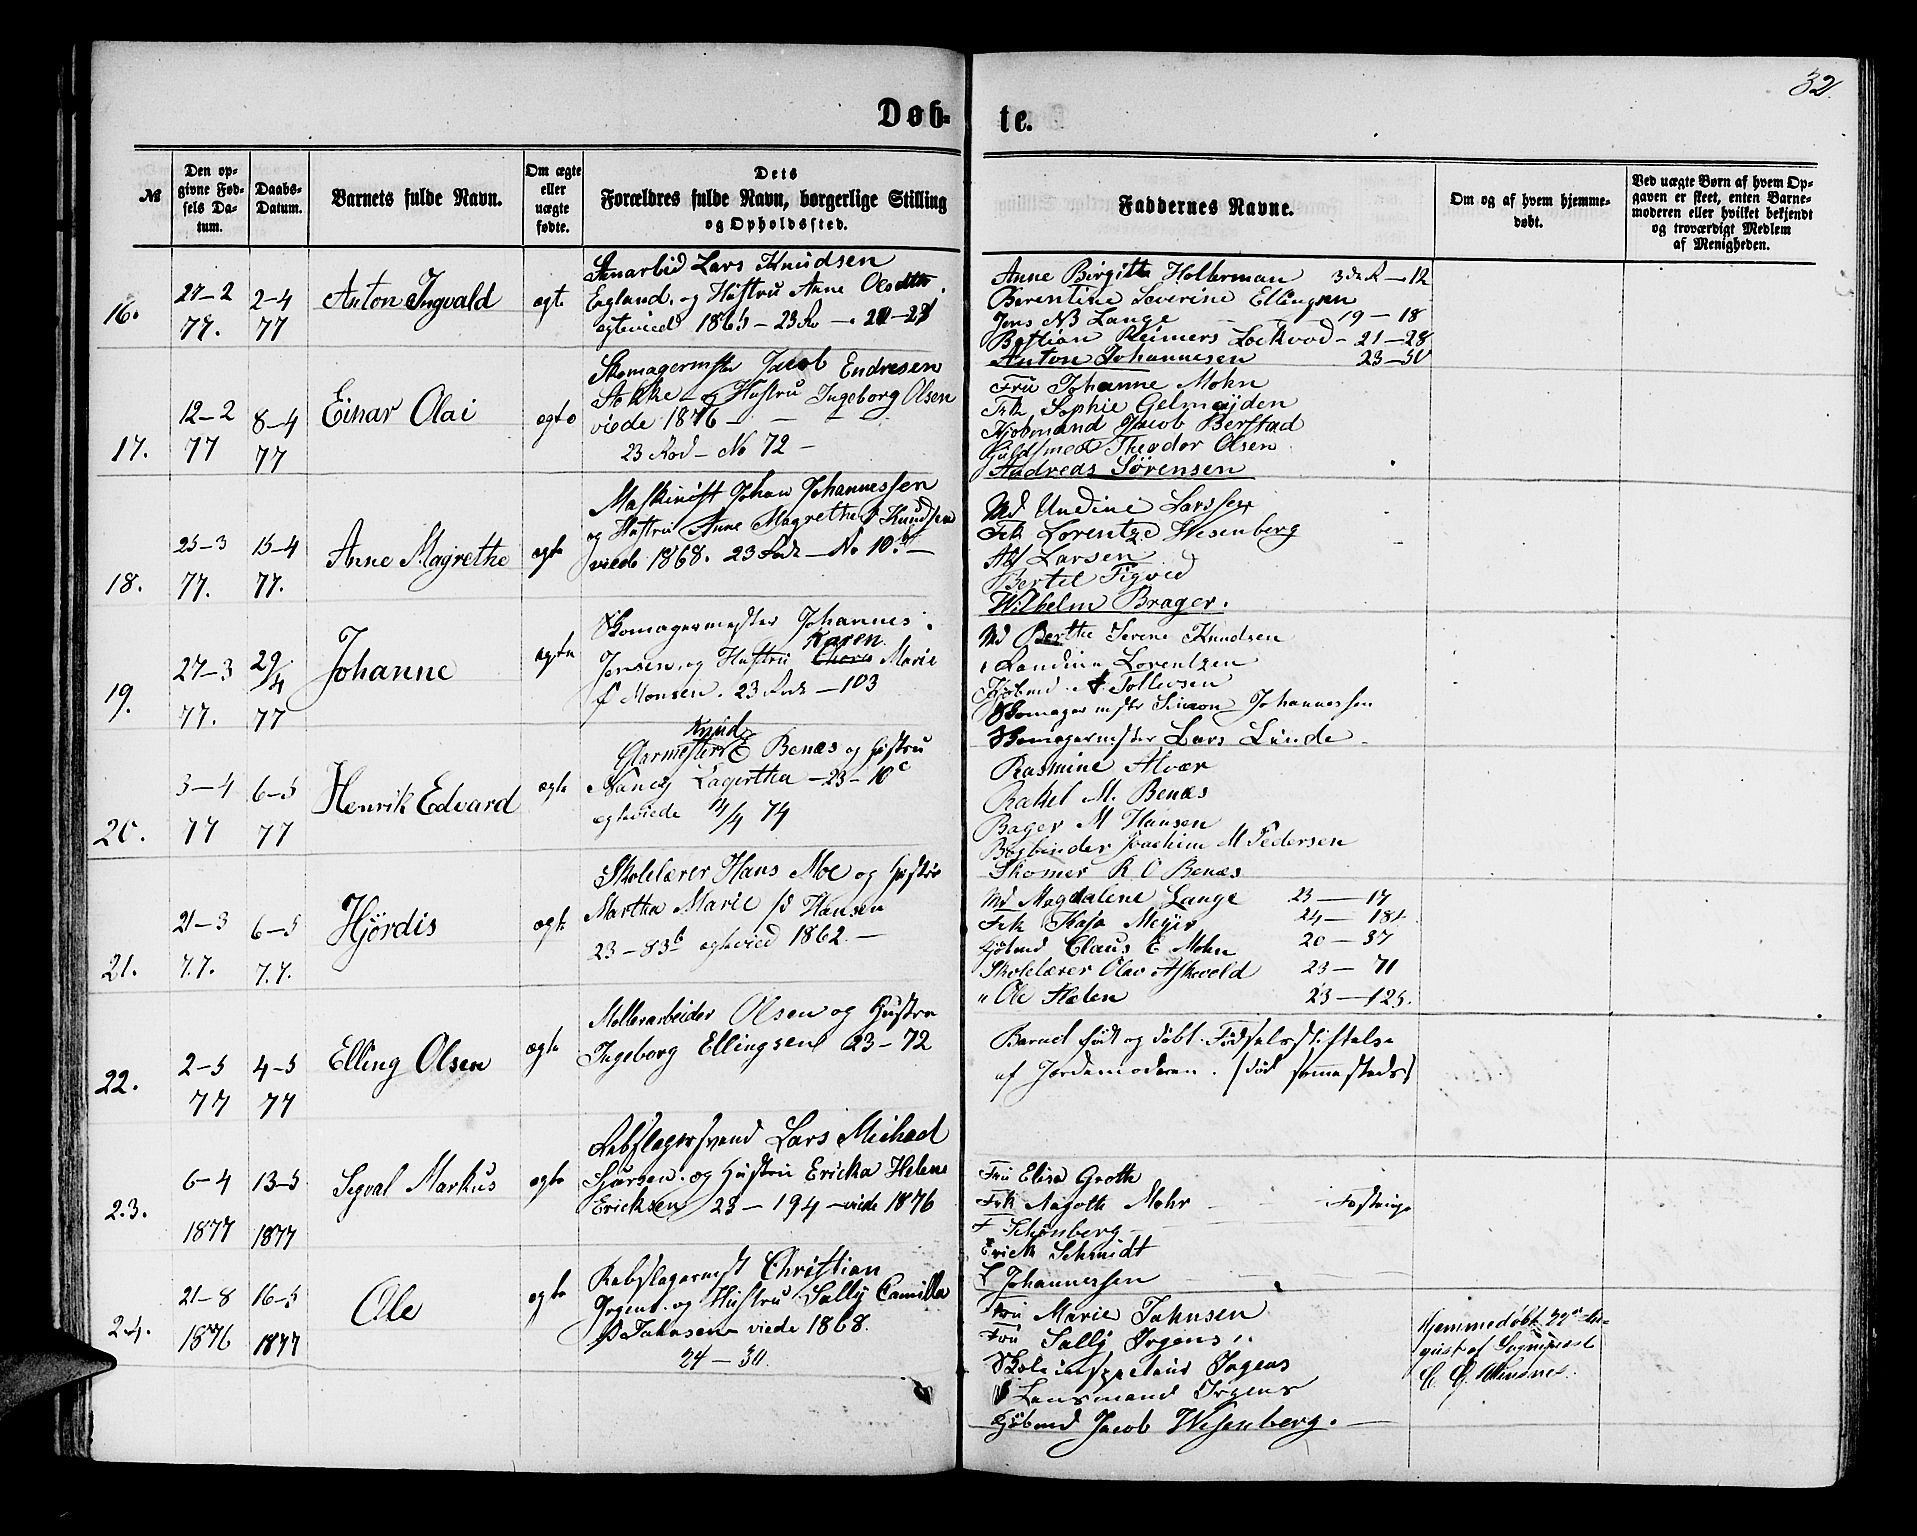 32.
Døb-
te.
№
Den op-
givne Fød-
sels Da-
tum.
Daabs-
Datum.
Barnets fulde Navn.
Om ægte
eller
uægte
fødte.
Dets
Forældres fulde Navn, borgerlige Stilling
og Opholdssted.
Faddernes Navne.
Om og af hvem hjemme-
døbt.
Ved uægte Børn af hvem Op-
gaven er skeet, enten Barne-
moderen eller hvilket bekjendt
og troværdigt Medlem
af Menigheden.
16.
27-2
77.
2-4
77
Anton Ingvald
egte
Lars Knudsen
og Hustru Anne
egteviede 1865 - 23 Ro
Anne Birgitte Holterman 3de R - 12
Berentine Severine Ellingsen
Jens NB Lange - 19-18
Bastian Reimers Lockvod - 21-28
Anton Johannesen 23-50
17.
12-2
77
8-4
77
Einar Olai
egte
Skomagermster Jacob Endresen
Stokke og Hustru Ingeborg Olsen
viede 1876
23 Rod - No 72 -
Fru Johanne Mohn
Frk Sophie Gelmøyden
Kjøbmand Jacob Berstad
Guldsmed Theodor Olsen
Andreas Sørensen
18.
25-3
77.
15-4
77.
Anne Magrethe
egte
Maskinist Johan Johannessen
og Hustru Anne Magrethe f Knudsen
viede 1868. 23 Rode - No 10.b -
Md Undine Larssen
Frk Lorentze Wesenberg
Larsen
Bertel Tigved
Wilhelm Brager.
19.
27-3
77.
29/4
77
Johanne
egte
Skomagermester Johannes
Karen
Jensen og Hustru Marie
f Monsen. 23 Rode - 103
Md Berthe Serene Knudsen
" Randine Lorentzen
Kjøbmd A. Tollevsen
Skomager mster Simon Johannessen
Skomagermester Lars Lunde
20.
3-4
77
6-5
77
Henrik Edvard
egte
Knud
Glarmester E Benæs og Hustru
Nancy Lagertha - 23 - 10c
egteviede 14/4 74
Rasmine Alvær
Rakel M. Benæs
Bager M Hansen
Bogbinder Joachim M Pedersen
Skomer R O Benæs
21.
21-3
7.7.
6-5
7.7.
Hjørdis
egte
Skolelærer Hans Moe og Hustru
Martha Marie f Hansen
23-83b egteviede 1862. -
Md Magdalene Lange 23 - 17
Frk Kaja Meyer 24 - 181
Kjøbmd Claus E Mohn 20 - 37
Skolelærer Olav Askevold 23 - 71
" Ole Hælen 23 - 125.
22.
2-5
77
4-5
77
Elling Olsen
ægte
Møllerarbeider Olsen og Hustru
Ingeborg Ellingsen 23-72
Barnet født og døbt Fødselsstiftelse
af Jordemoderen. (død sammesteds)
23.
6-4
1877
13-5
1877
Sigval Markus
egte
Rebslagersvend Lars Michael
Sjursen og Hustru Ericka Helene
Ericksen 23 - 194 - viede 1876
Fru Elisa Groth
Frk Aagoth Mohr
F Schønberg
Erick Schmidt
L Johannessen
24.
21-8
1876
16-5
1877
Ole
egte
Rebslagermst Christian
Irgens og Hustru Sally Camilla
f Jahnsen viede 1868.
24-30.
Fru Marie Jahnsen
Fru Sally Irgens
Skoleinspecteur Irgens
Lensmand Irgens
Kjøbmd Jacob Wesenberg.
Hjemmedøbt 22de Au-
gust af Sogneprest